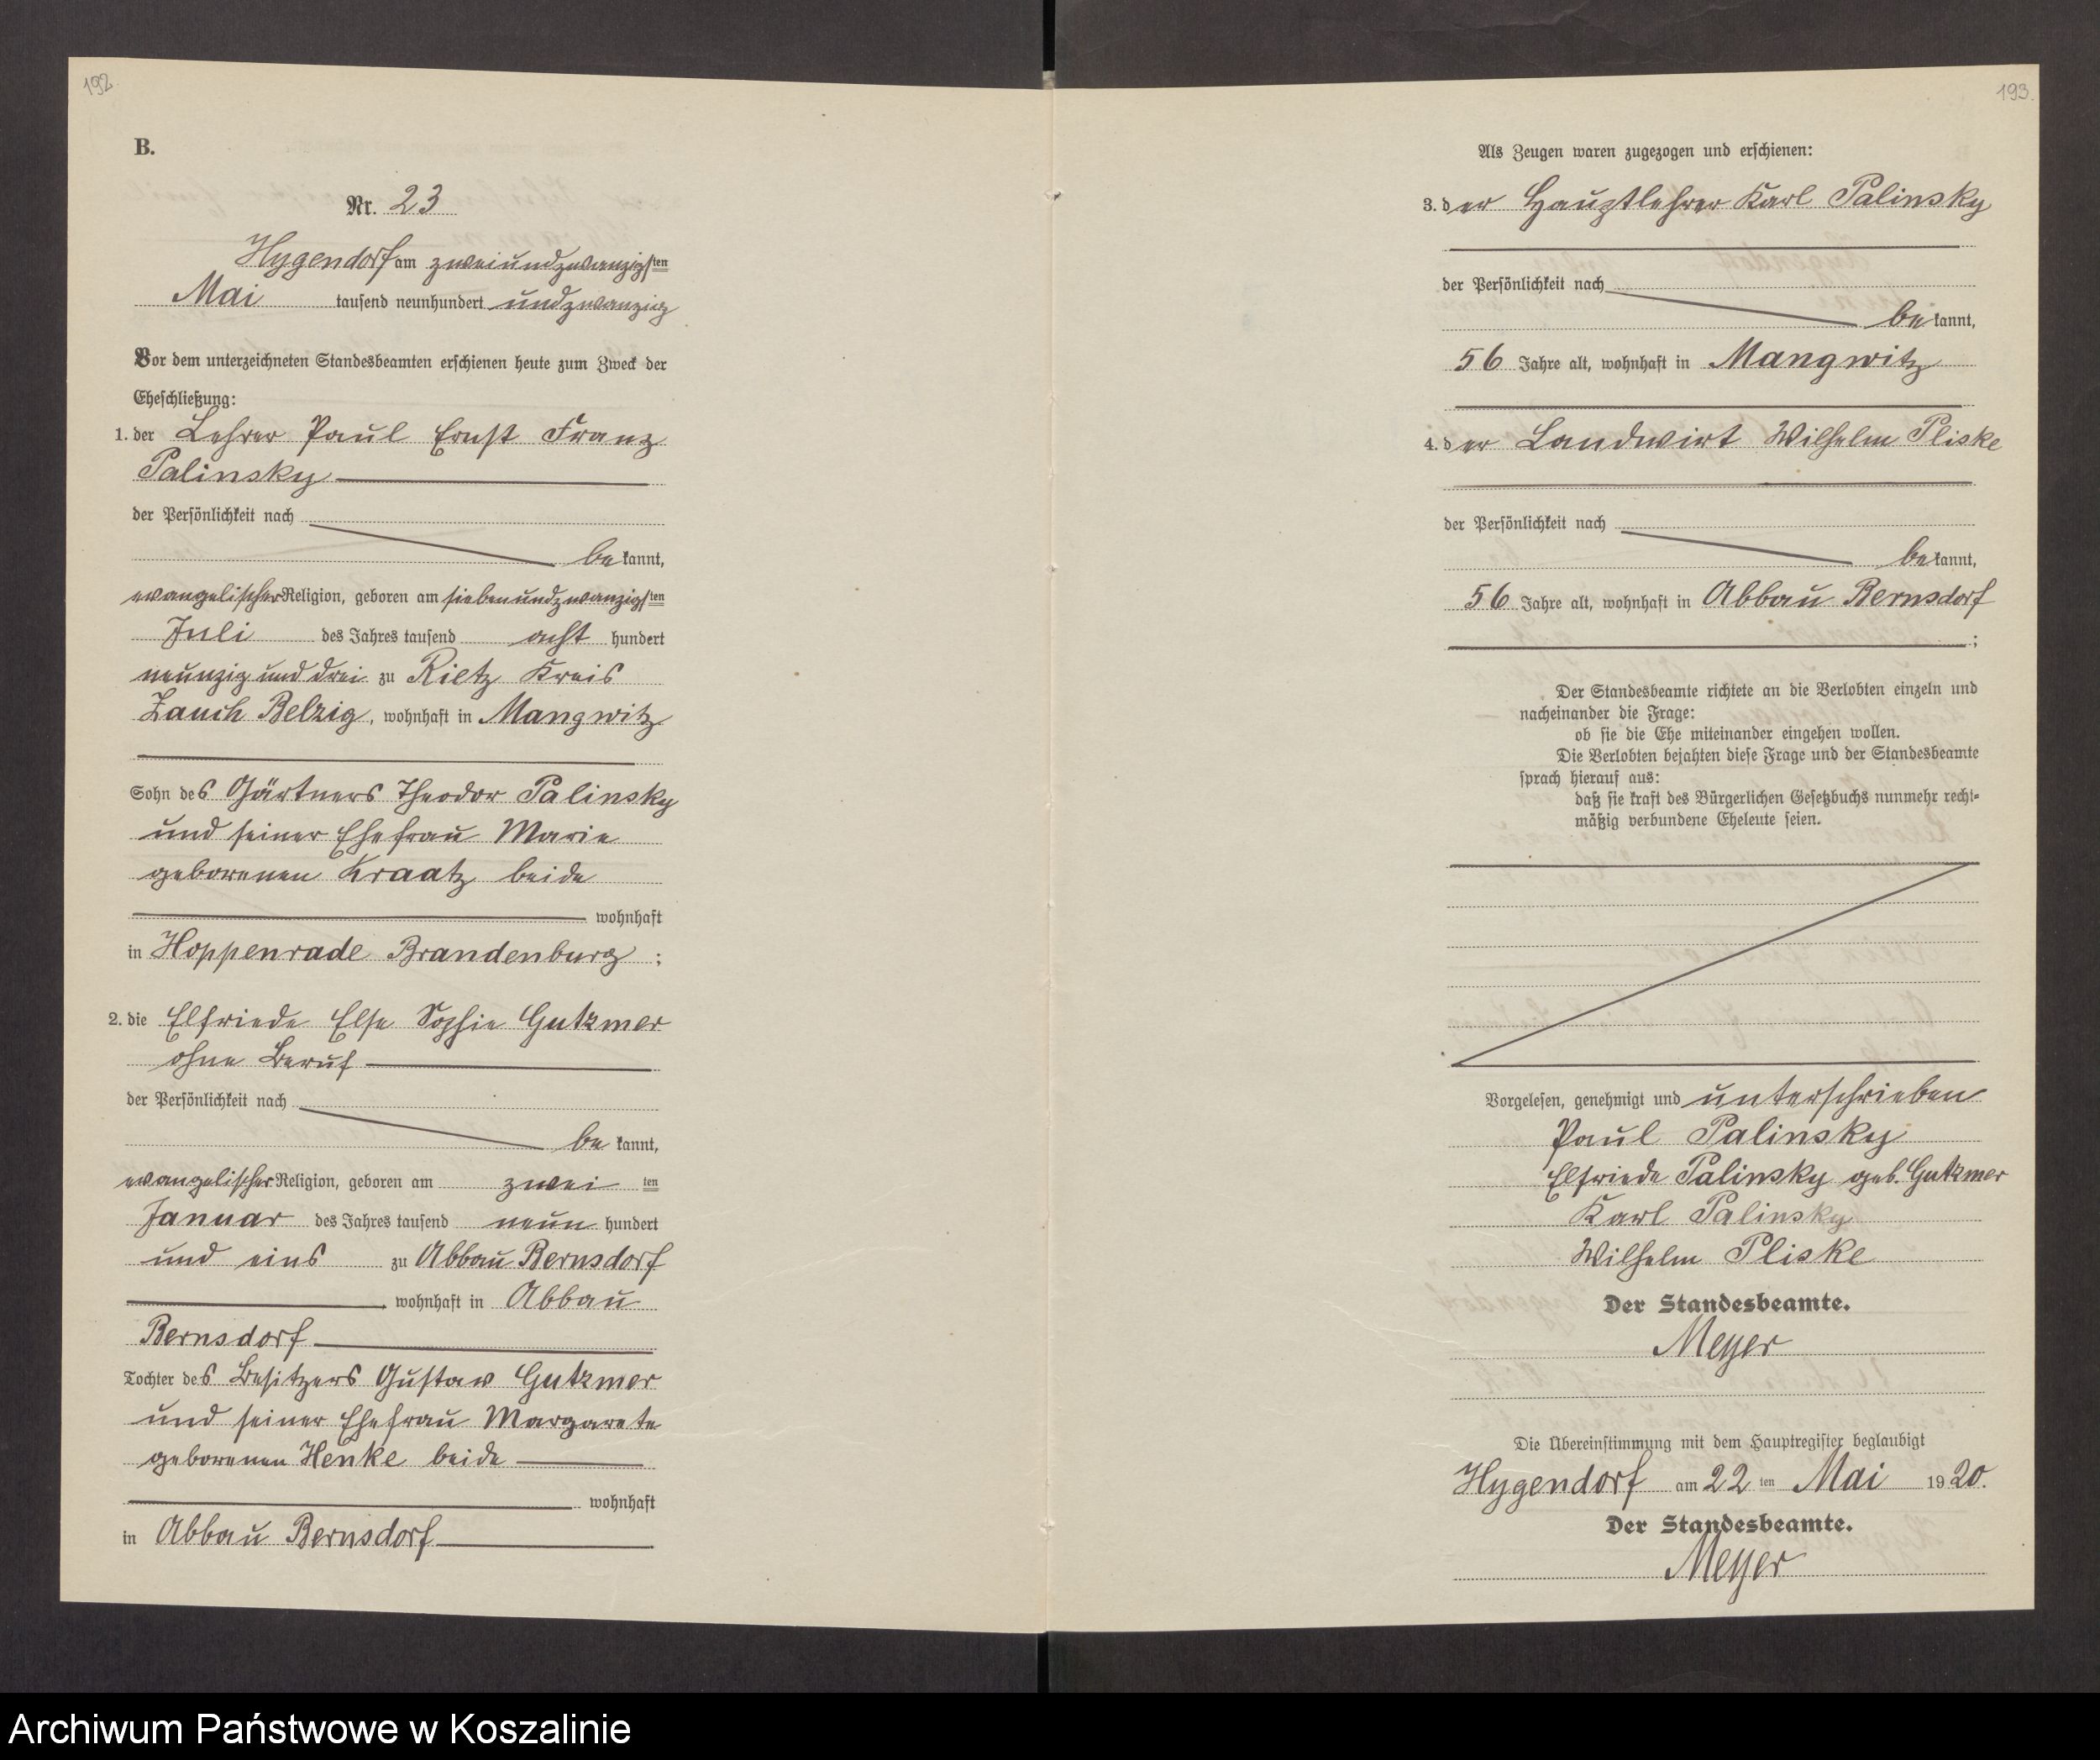 192.
B.
Nr. 23
Hygendorf am zweiundzwanzigsten
Mai tausend neunhundert undzwanzig
Vor dem unterzeichneten Standesbeamten erschienen heute zum Zweck der
Eheschließung:
1. der Lehrer Paul Ernst Franz
Palinsky
der Persönlichkeit nach
bekannt,
evangelischer Religion, geboren am siebenundzwanzigsten
Juli des Jahres tausend acht hundert
neunzig und drei zu Rietz Kreis
Zauch Belzig, wohnhaft in Mangwitz
Sohn des Gärtners Theodor Palinsky
und seiner Ehefrau Marie
geborenen Kraatz beide
wohnhaft
in Hoppenrade Brandenburg ;
2. die Elfriede Else Sophie Gutzmer
ohne Beruf
der Persönlichkeit nach
bekannt,
evangelischer Religion, geboren am zwei ten
Januar des Jahres tausend neun hundert
und eins zu Abbau Bernsdorf
, wohnhaft in Abbau
Bernsdorf
Tochter des Besitzers Gustav Gutzmer
und seiner Ehefrau Margarete
geborenen Henke beide
wohnhaft
in Abbau Bernsdorf
193.
Als Zeugen waren zugezogen und erschienen:
3. der Hauptlehrer Karl Palinsky
der Persönlichkeit nach
bekannt,
56 Jahre alt, wohnhaft in Mangwitz
4. der Landwirt Wilhelm Pliske
der Persönlichkeit nach
bekannt,
56 Jahre alt, wohnhaft in Abbau Bernsdorf
;
Der Standesbeamte richtete an die Verlobten einzeln und
nacheinander die Frage:
ob sie die Ehe miteinander eingehen wollen.
Die Verlobten bejahten diese Frage und der Standesbeamte
sprach hierauf aus:
daß sie kraft des Bürgerlichen Gesetzbuchs nunmehr recht-
mäßig verbundene Eheleute seien.
Vorgelesen, genehmigt und unterschrieben
Paul Palinsky
Elfriede Palinsky geb. Gutzmer
Karl Palinsky
Wilhelm Pliske
Der Standesbeamte.
Meyer
Die Übereinstimmung mit dem Hauptregister beglaubigt
Hygendorf am 22 ten Mai 1920.
Der Standesbeamte.
Meyer
Archiwum Państwowe w Koszalinie